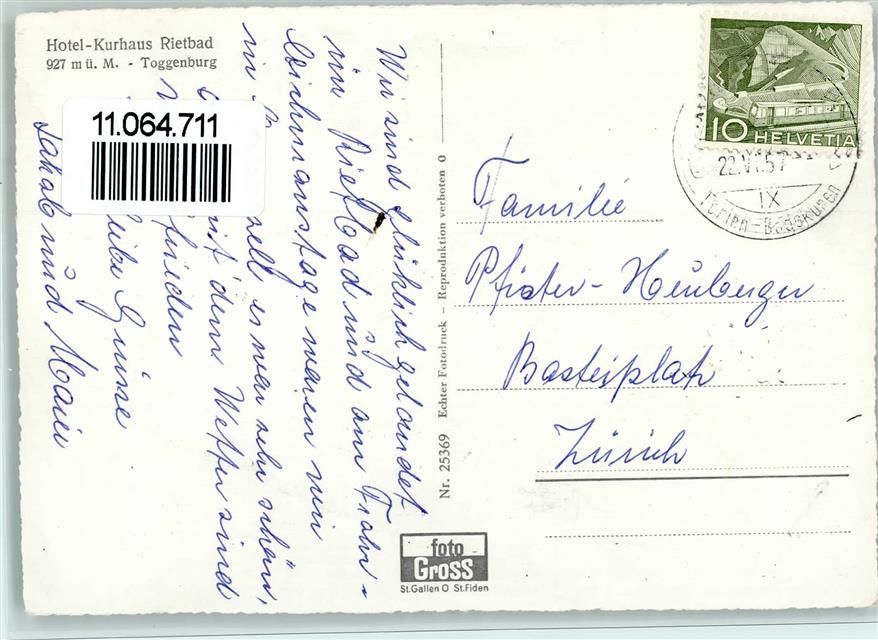 Hotel-Kurhaus Rietbad
927 m ü. M. - Toggenburg
11.064.711
Wir sind glüklich gelandet
im Rietbad und am Frohn-
leichnamstage waren wir
in zell es war sehr schön,
mit dem Wetter sind
zufrieden
liebe Grüsse
Jakob und Marie
Nr. 25369 Echter Fotodruck - Reproduktion verboten O
foto
Gross
St.Gallen O St.Fiden
10 HELVETIA
22.VI.57
IX
Ferien - Badekuren
Familie
Pfister - Heuberger
Basteiplatz
Zürich